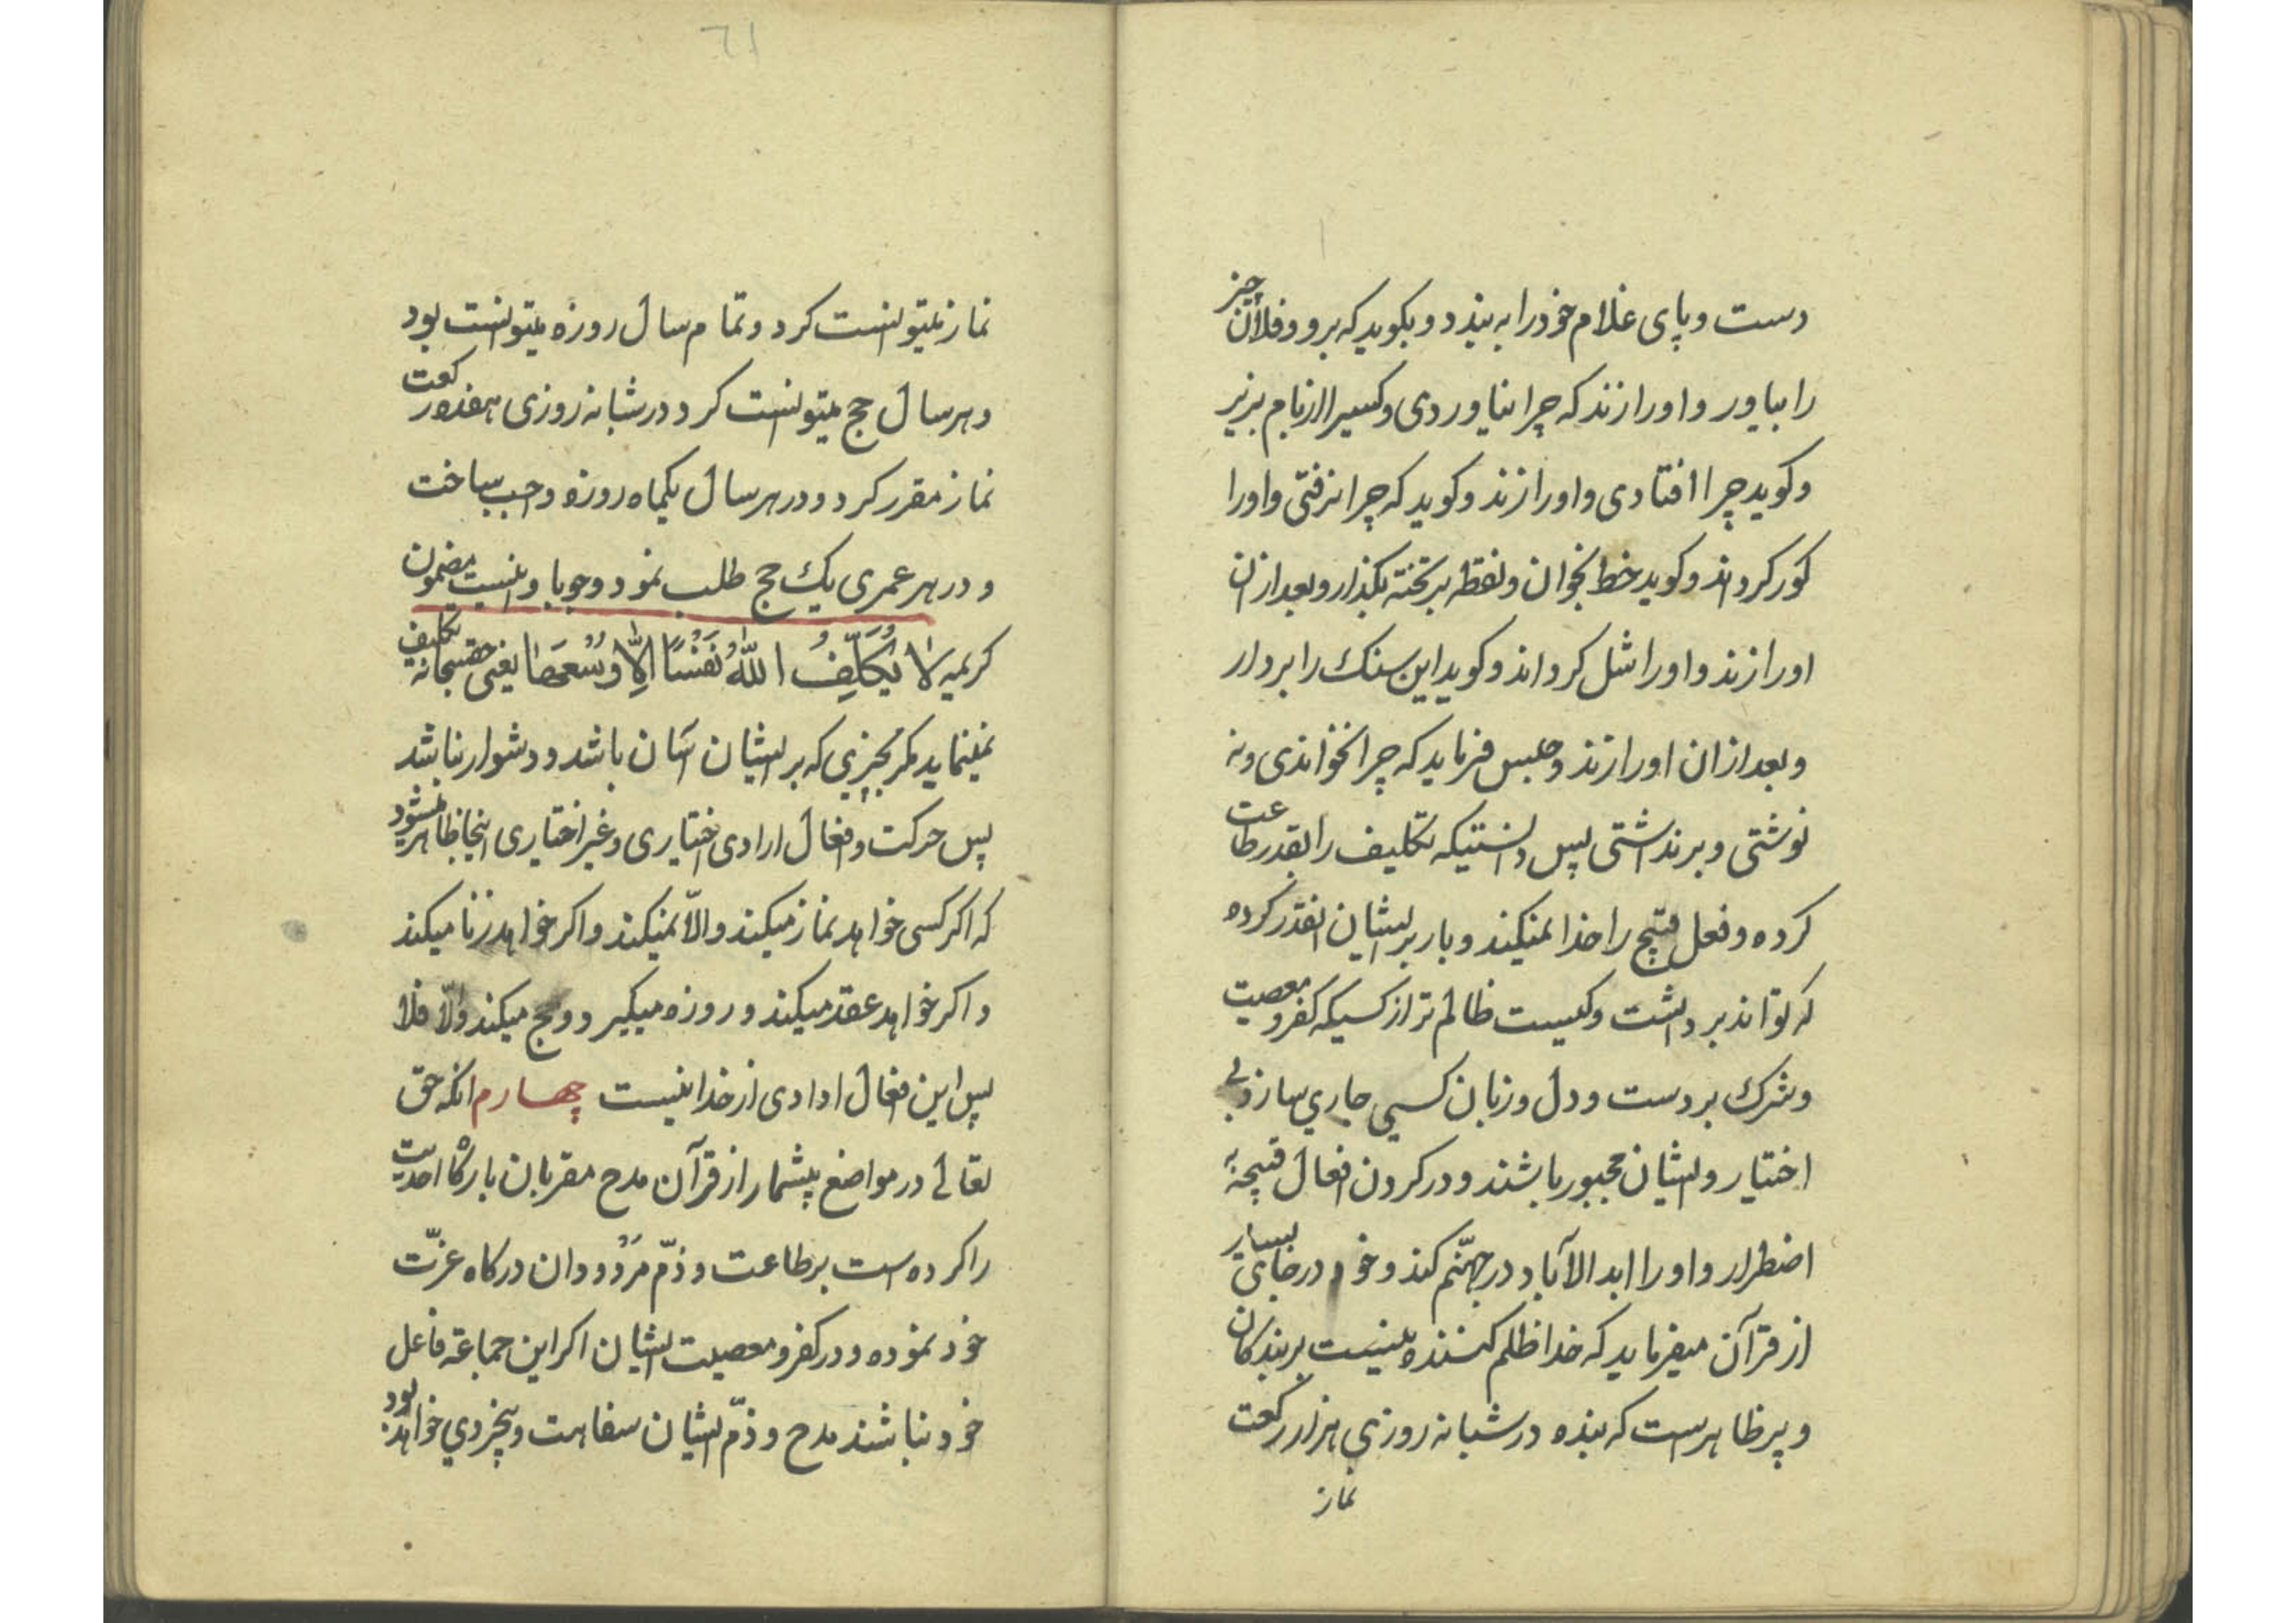 دست و پای غلام خود را به بندد و بکوید که برو و فلان چیز
را بیاور و او را زند که چرا نیاوردی و کسیرا از بام بزیر
و کوید چرا افتادی و او را زند و کوید که چرا نرفتی و او را
کور کرداند و کوید خط بخوان و نقطه بر تخته بکذار و بعد ازان
او را زند و او را شل کرداند و کوید این سنک را بردار
و بعد ازان او را زند و حبس فرماید که چرا نخواندی و نه
نوشتی و برنداشتی پس دانستیکه تکلیف را بقدر طاعت
کرده و فعل قبیح را خدا نمیکند و بار بر ایشان انقدر کرده
که تواند برداشت و کیست ظالم تر از کسیکه کفر و معصیت
و شرک بر دست و دل و زبان کسی جاری سازد بی
اختیار و ایشان مجبور باشند و در کردن افعال قبیحه
اضطرار و او را ابد الآباد در جهنّم کند و خود در جای بسیار
از قرآن میفرماید که خدا ظلم کننده نیست بر بندکان
و پر ظاهرست که بنده در شبانه روزی هزار رکعت
نماز
٦١
نماز میتوانست کرد و تمام سال روزه میتوانست بود
و هر سال حج میتوانست کرد و در شبانه روزی هفده رکعت
نماز مقرر کرد و در هر سال یکماه روزه واجب ساخت
و در هر عمری یک حج طلب نمود وجوبا و نیست مضمون
کریمه لا یُکَلِّفُ اللّٰهُ نَفْسًا اِلّا وُسْعَهَا یعنی حقسبحانه تکلیف
نمینماید مکر بچیزی که بر ایشان آسان باشد و دشوار نباشد
پس حرکت و افعال ارادی اختیاری و غیر اختیاری اینجا ظاهر میشود
که اکر کسی خواهد نماز میکند والاّ نمیکند و اکر خواهد زنا میکند
و اکر خواهد عقد میکند و روزه میکیرد و حج میکند والّا فلا
پس این افعال ارادی از خدا نیست چهارم انکه حق
تعالی در مواضع بیشمار از قرآن مدح مقربان بارکاه احدیت
را کرده است بر طاعت و ذمّ مَرْدودان درکاه عزّت
خود نموده و در کفر و معصیت ایشان اکر این جماعة فاعل
خود نباشند مدح و ذمّ ایشان سفاهت و بیخردی خواهد بود